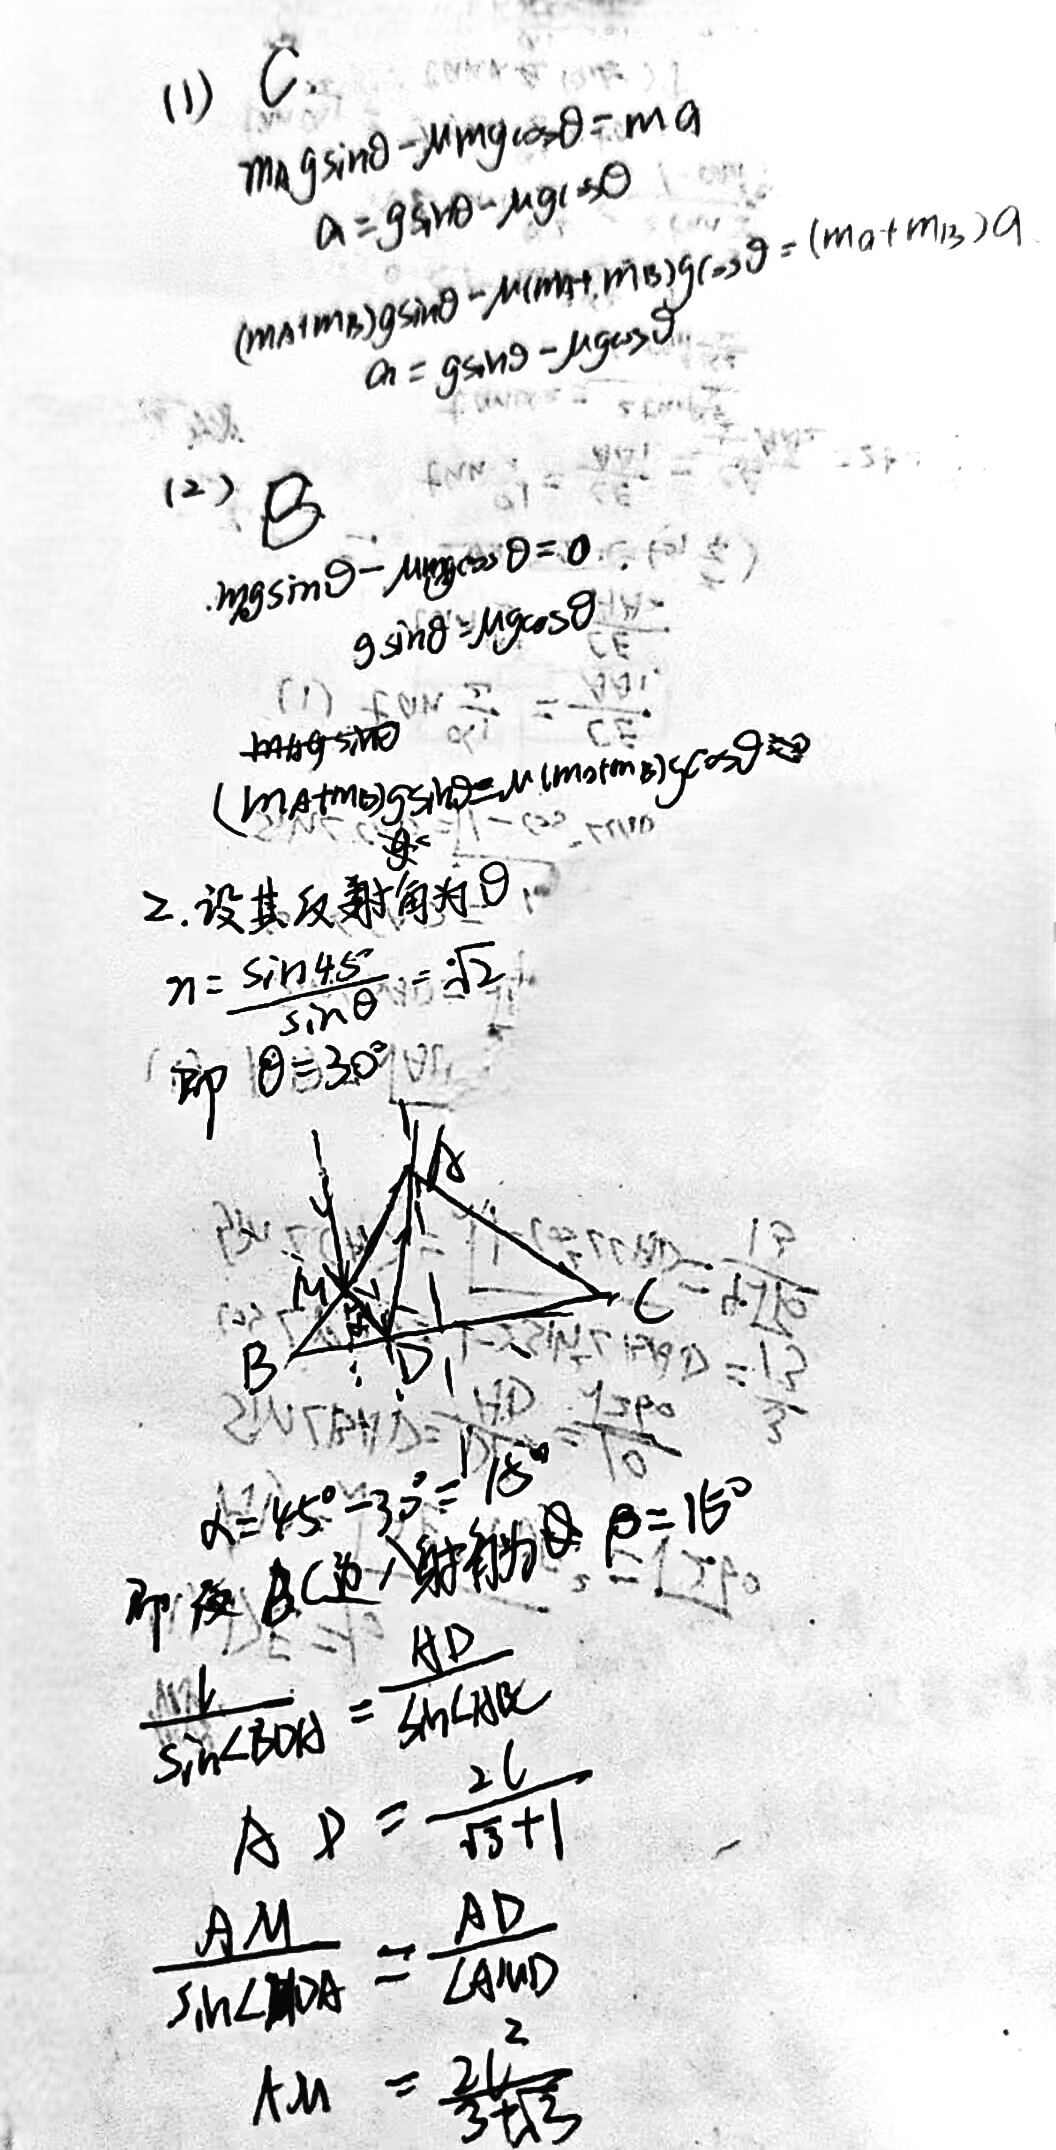 (1) C.
mAgsinθ-μmgcosθ=ma
a=gsinθ-μgcosθ
(mA+mB)gsinθ-μ(mA+mB)gcosθ=(ma+mB)a
a=gsinθ-μgcosθ
(2) B
mgsinθ-μmgcosθ=0
gsinθ=μgcosθ
mAgsinθ
(mA+mB)gsinθ=μ(ma+mB)gcosθ
2.设其反射角为θ
n=sin45°/sinθ=√2
即 θ=30°
A
M
C
B D
α=45°-30°=15°
即 BC边入射角为θ β=15°
L/sin∠BDA=AD/sin∠ABC
AD=2L/(√3+1)
AM/sin∠MDA=AD/∠AMD
AM=2L²/(3+√3)